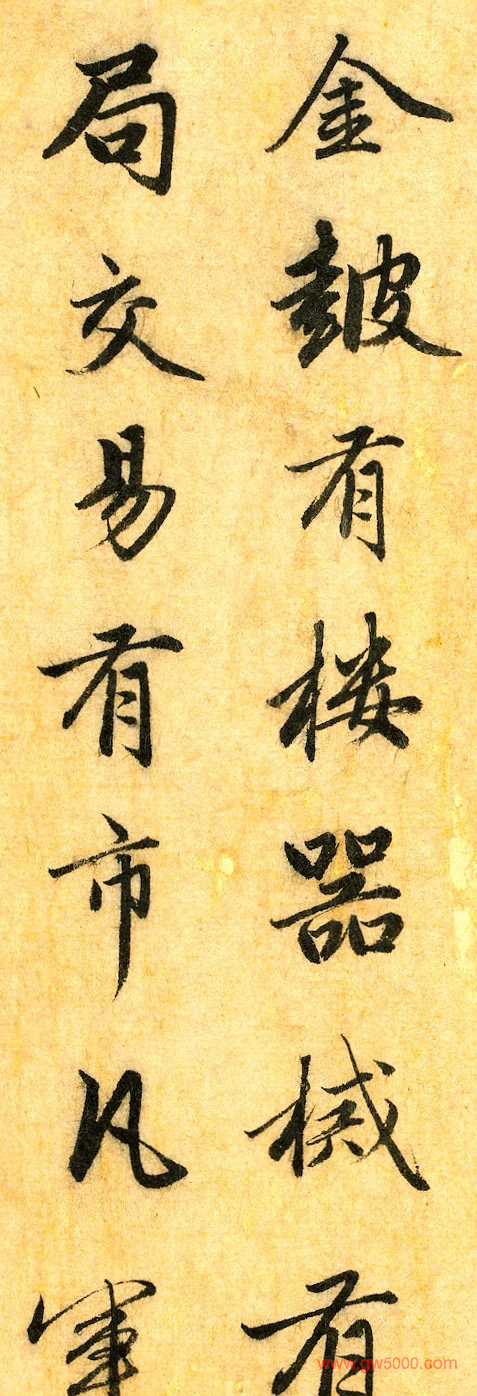 金皷有楼器械有
局交易有市凡軍
www.gw5000.com